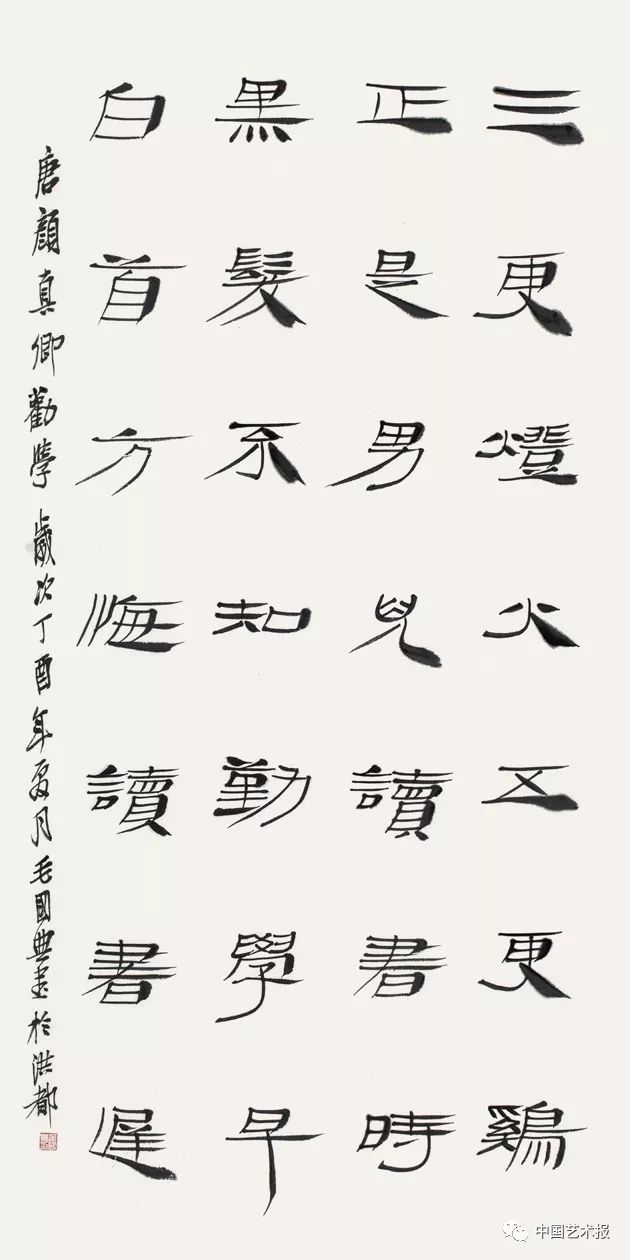 三更燈火五更鷄
正是男兒讀書時
黑髮不知勤學早
白首方悔讀書遲
唐顔真卿勸學 歲次丁酉年夏月毛國典書於洪都
中国艺术报